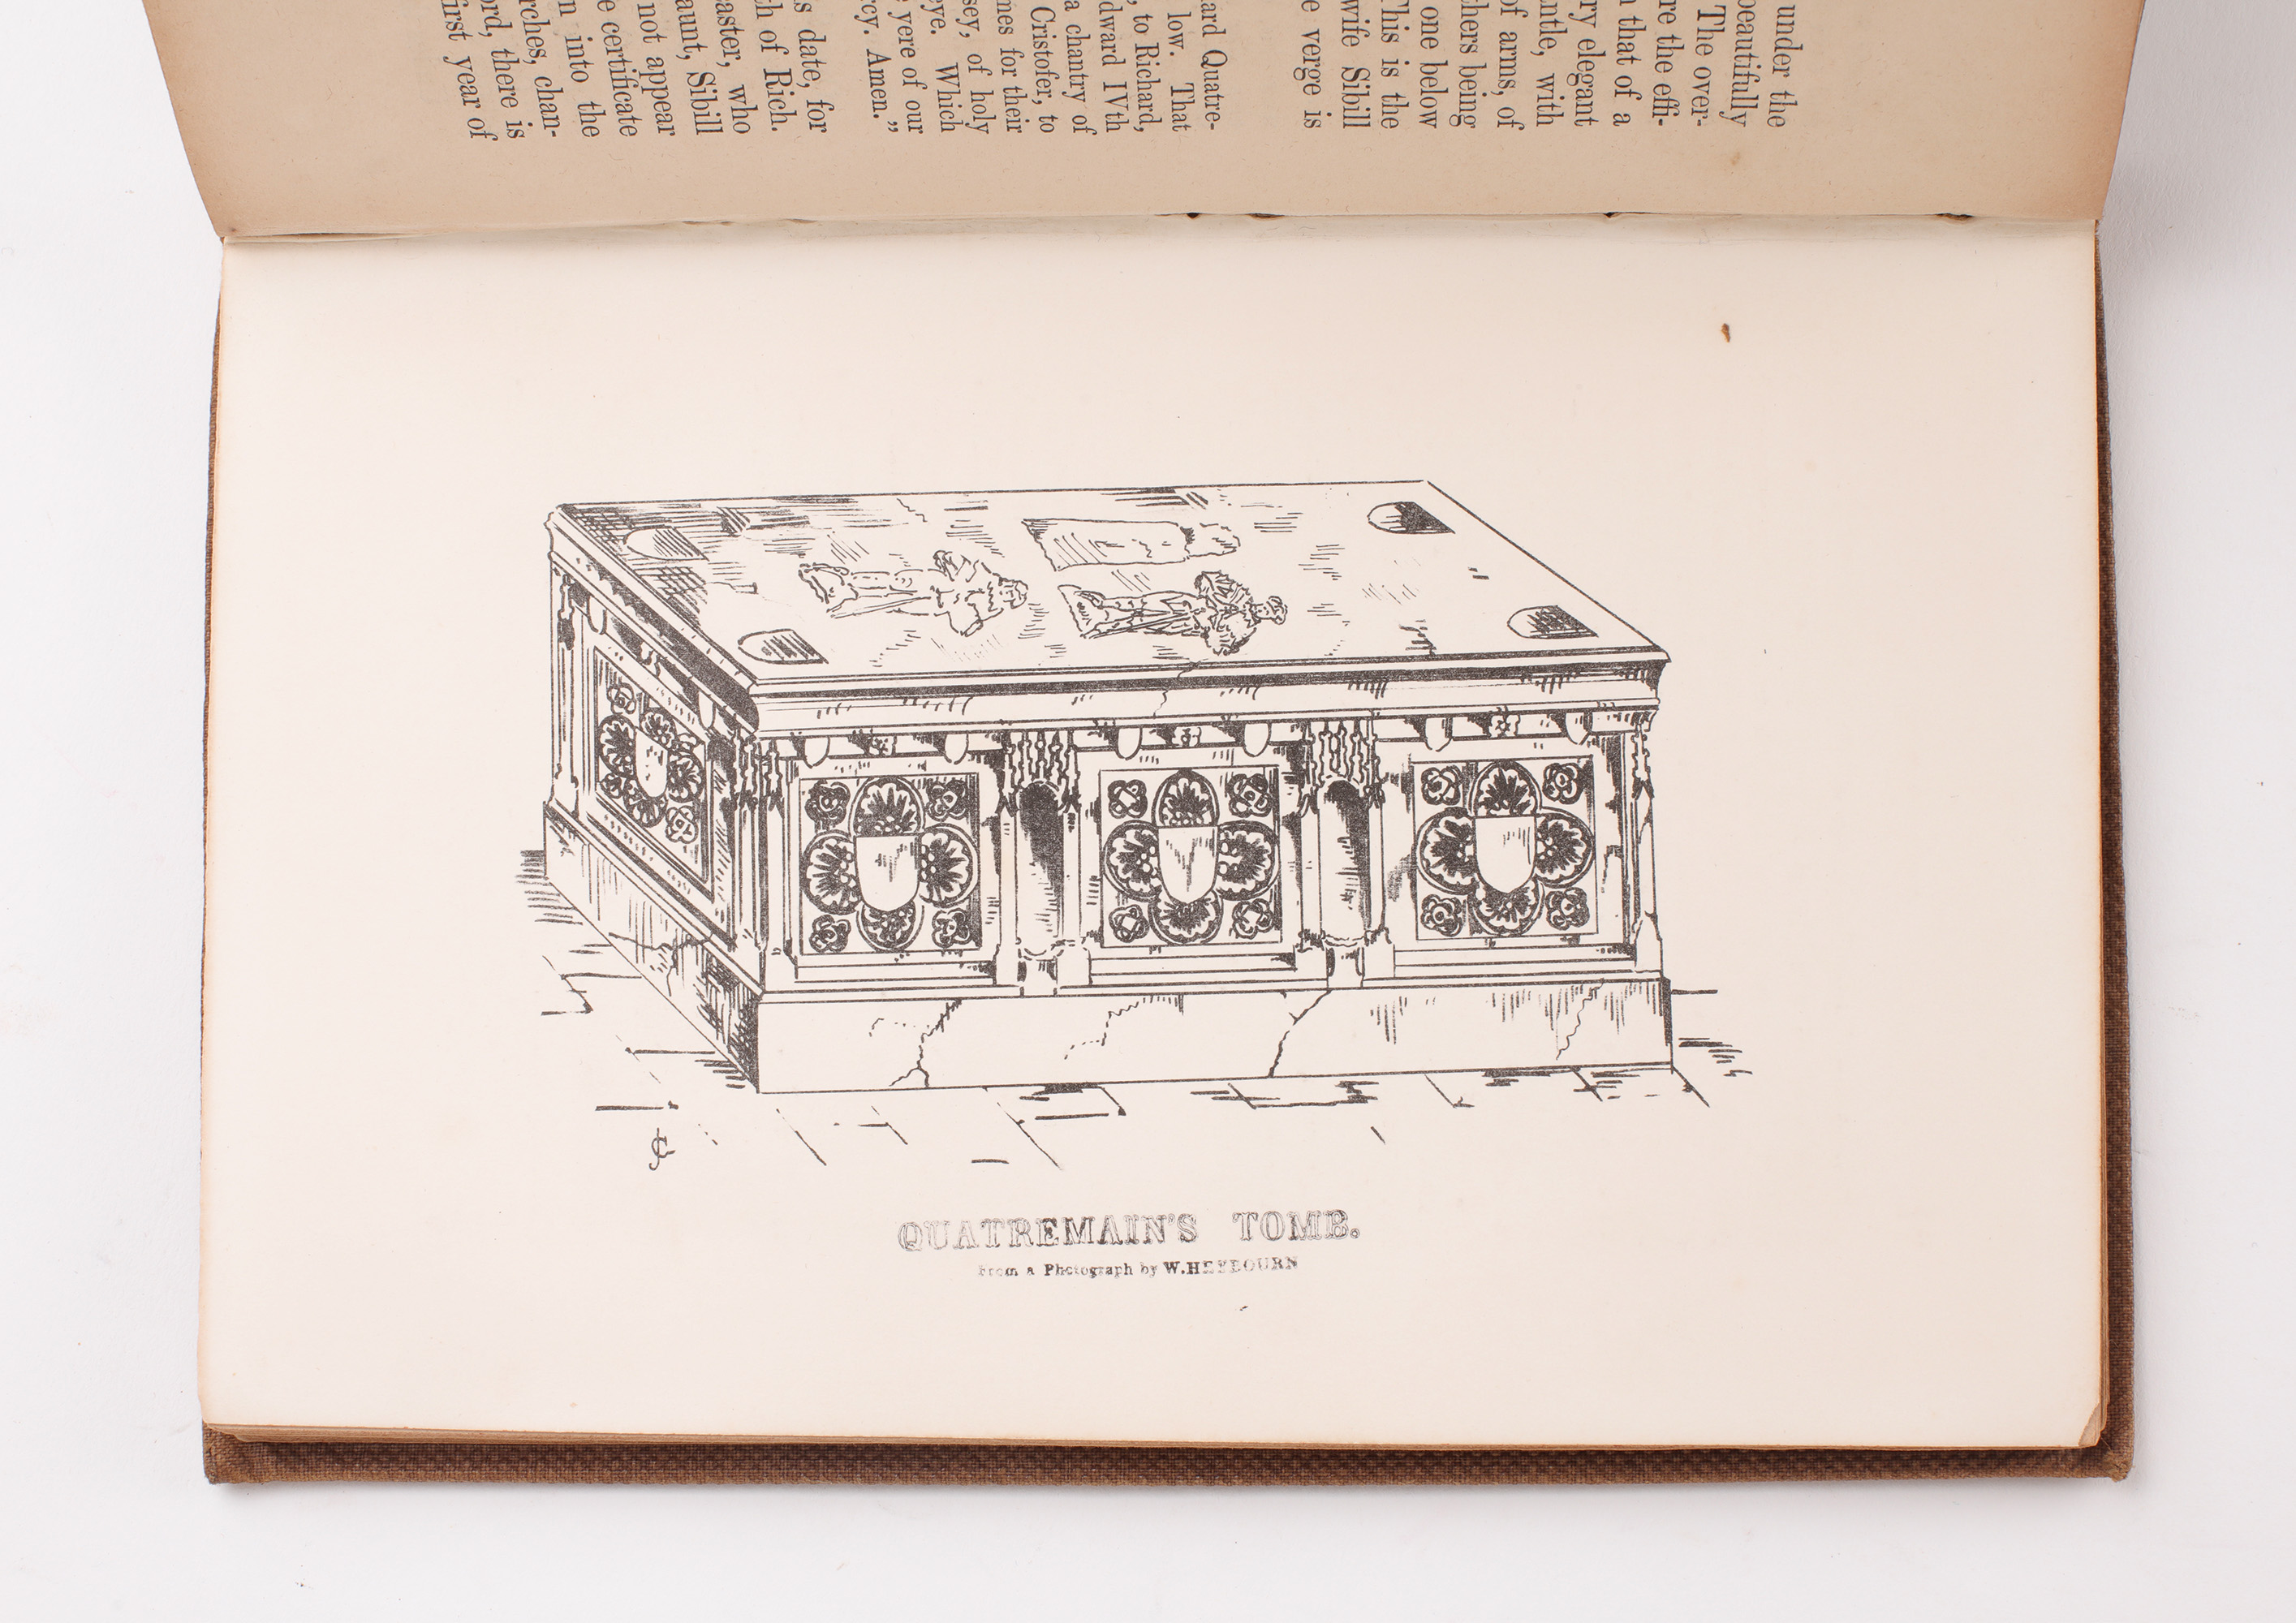 under the
beautifully
The over-
re the effi-
that of a
ry elegant
ntle, with
of arms, of
thers being
one below
This is the
wife Sibill
e verge is
ard Quatre-
low. That
, to Richard,
dward IVth
a chantry of
Cristofer, to
mes for their
sey, of holy
eye. Which
yere of our
rcy. Amen.”
s date, for
ch of Rich.
caster, who
aunt, Sibill
not appear
e certificate
n into the
rches, chan-
ord, there is
first year of
QUATREMAIN'S TOMB.
From a Photograph by W.HEYBOURN